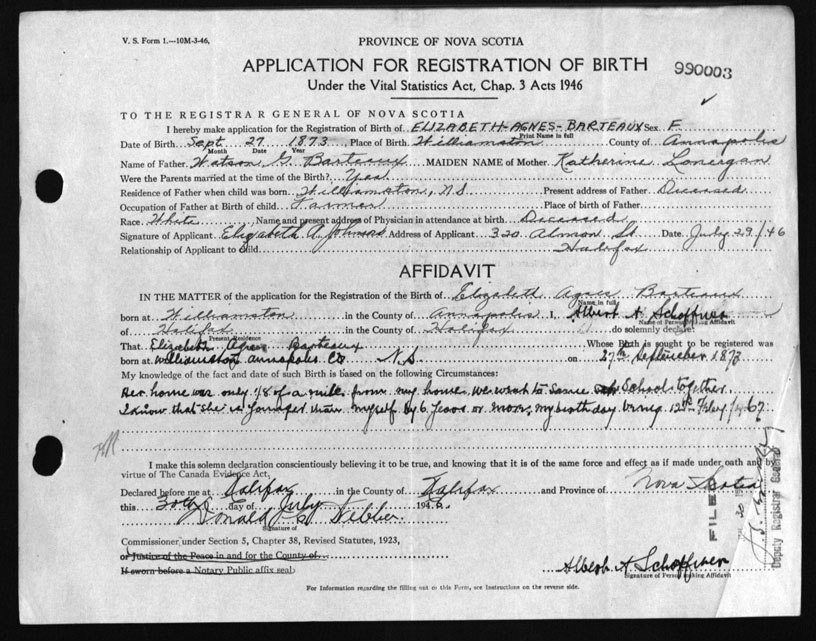 V. S. Form 1.—10M-3-46.
PROVINCE OF NOVA SCOTIA
APPLICATION FOR REGISTRATION OF BIRTH
990003
Under the Vital Statistics Act, Chap. 3 Acts 1946
TO THE REGISTRAR GENERAL OF NOVA SCOTIA
I hereby make application for the Registration of Birth of ELIZABETH-AGNES-BARTEAUX Sex F
Print Name in full
Date of Birth Sept. 27 1873 Place of Birth Williamston County of Annapolis
Month Date Year
Name of Father Watson G. Barteaux MAIDEN NAME of Mother Katherine Lonergan
Were the Parents married at the time of the Birth? Yes
Residence of Father when child was born Williamston, N.S. Present address of Father Deceased
Occupation of Father at Birth of child Farmer Place of birth of Father
Race White Name and present address of Physician in attendance at birth Deceased
Signature of Applicant Elizabeth A. Address of Applicant 320 Almon St. Date July 29/46
Relationship of Applicant to Child Halifax
AFFIDAVIT
IN THE MATTER of the application for the Registration of Birth of Elizabeth Agnes Barteaux
Name in full
born at Williamston in the County of Annapolis I, Albert A Schaffner
Name of Person making Affidavit
of Halifax in the County of Halifax do solemnly declare:
Present Residence
That Elizabeth Agnes Barteaux Whose Birth is sought to be registered was
born at Williamston Annapolis Co N.S. on 27th September 1873
My knowledge of the fact and date of such Birth is based on the following Circumstances:
Her home was only 1/8 of a mile from my home we went to same School together
I know that she is younger than myself by 6 years or more, my birthday being 12th 1867
I make this solemn declaration conscientiously believing it to be true, and knowing that it is of the same force and effect as if made under oath and by
virtue of The Canada Evidence Act.
Declared before me at Halifax in the County of Halifax and Province of Nova Scotia
this 30th day of July 1946.
Donald
Signature of
Commissioner under Section 5, Chapter 38, Revised Statutes, 1923,
or Justice of the Peace in and for the County of
If sworn before a Notary Public affix seal
Albert A Schaffner
Signature of Person making Affidavit
FILED
Deputy Registrar General
For Information regarding the filling out to this Form, see Instructions on the reverse side.